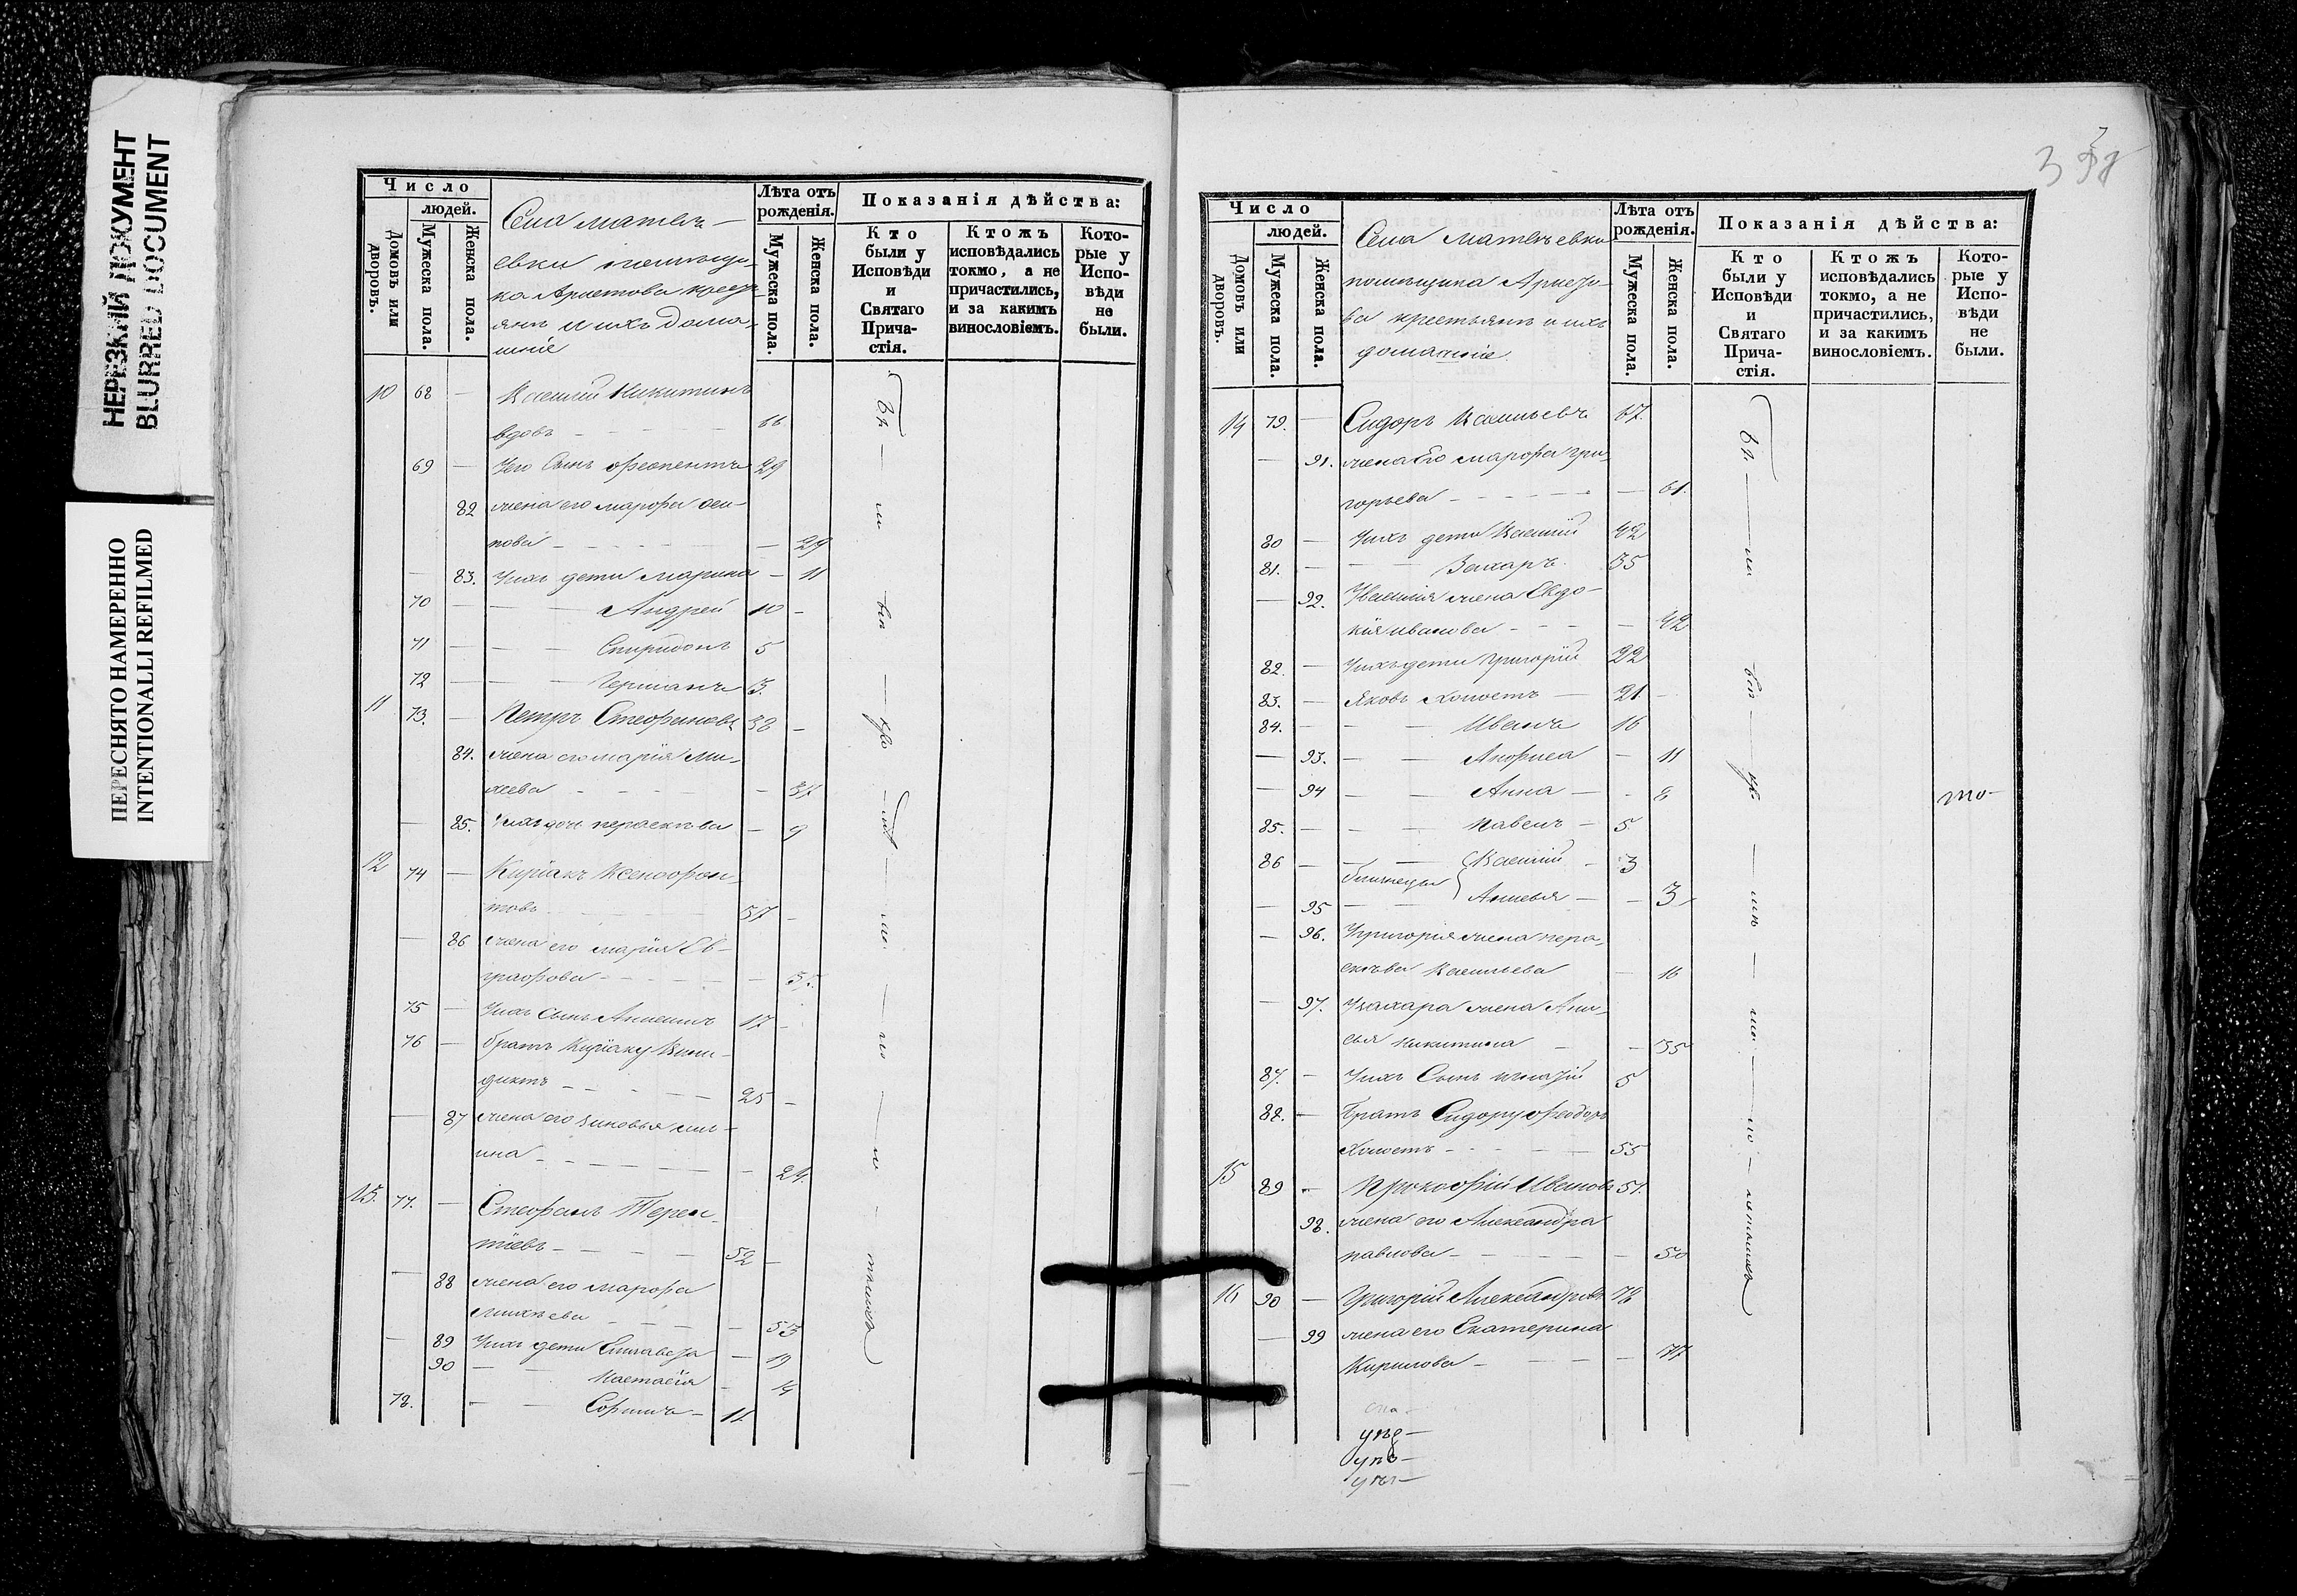 НЕРЕЗКИЙ ДОКУМЕНТ
BLURRED DOCUMENT
ПЕРЕСНЯТО НАМЕРЕННО
INTENTIONALLI REFILMED
Число
людей.
Домовъ или дворовъ.
Мужеска пола.
Женска пола.
Села Матвѣ-
евки помѣщи-
ка крестъ-
янъ и ихъ дома-
шніе
Лѣта отъ рожденія.
Мужеска пола.
Женска пола.
Показанія дѣйства:
Кто были у Исповѣди и Святаго Причастія.
Ктожъ исповѣдались токмо, а не причастились, и за какимъ винословіемъ.
Которые у Исповѣди не были.
10 68 — Василій Никитинъ
вдовъ — 66
69 — Его Сынъ Феопентъ 29
82 жена его Марфа Оси-
пова — — 29
— 83. Ихъ дети Марина — 11
70 — — Андрей 10 —
71 — — Спиридонъ 5
72 — — Германъ 3.
11 73. — Петръ Стефановъ 38 —
84. жена его Марія Ми-
хеева — — 37
— 85. Ихъ дочь Параскѣва — 9
12 74 — Кирїакъ Ксенофон-
товъ 57 —
— 86 жена его Марія Ев-
графова — — 55.
75 — Ихъ Сынъ Алексѣй 17 —
76 — братъ Кирїаку Вени-
диктъ — 25 —
— 87 жена его Зиновья
ина — — 24.
13. 77. — Стефанъ Терен-
тїевъ — 52 —
— 88 жена его Марфа
Михѣева — — 53
— 89 Ихъ дети Елисавета — 19
90 — Настасія — 14
78. — — Софронъ — 11.
3
Число
людей.
Домовъ или дворовъ.
Мужеска пола.
Женска пола.
Села Матвѣевки
помѣщика
ва крестьянъ и ихъ
домашніе.
Лѣта отъ рожденія.
Мужеска пола.
Женска пола.
Показанія дѣйства:
Кто были у Исповѣди и Святаго Причастія.
Ктожъ исповѣдались токмо, а не причастились, и за какимъ винословіемъ.
Которые у Исповѣди не были.
14 79. — Сидоръ Васильевъ 67.
— 91. жена Его Марфа Гри-
горьева — — 61.
80 — Ихъ дети Василій 42
81. — — Захаръ 35
— 92. У Василія жена Евдо-
кія Иванова — — 42
82. — Ихъ дети Григорій 22
83. — Яковъ холостъ — 21 —
84. — — Иванъ 16
— 93. — — Анфиса — 11
— 94 — — Анна — — 8
85. — — Павелъ — 5
86 — — Василій — 3
близнецы
— 95 — — — — 3
— 96. У Григорія жена Пара-
скѣва Васильева — 16
— 97. У Захара жена Ани-
сья Никитина — — 35
87. — Ихъ Сынъ Игнатій 5
88. — Братъ Сидору Феодоръ
Холостъ — 55
15 89 — Прокофій Ивановъ 51.
98. жена его Александра
Павлова — — 50
16 90 — Григорій Александровъ 78
— 99 жена его Екатерина
Кирилова — — 77